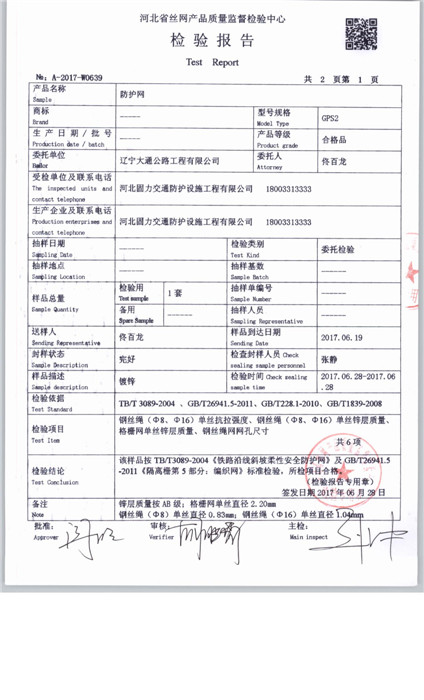 河北省丝网产品质量监督检验中心
检 验 报 告
Test Report
№: A-2017-W0639 共 2 页第 1 页
产品名称 Sample 防护网
商标 Brand ----- 型号规格 Model Type GPS2
生 产 日 期 / 批 号 Production date / batch ----- 产品等级 Product grade 合格品
委托单位 辽宁大通公路工程有限公司 委托人 Attorney 佟百龙
受检单位及联系电话 The inspected units and contact telephone 河北固力交通防护设施工程有限公司 18003313333
生产企业及联系电话 Production enterprises and contact telephone 河北固力交通防护设施工程有限公司 18003313333
抽样日期 Sampling Date ------ 检验类别 Test Kind 委托检验
抽样地点 Sampling Location ------ 抽样基数 Sample Batch ------
样品总量 Sample Quantity 检验用 Test sample 1 套 抽样单编号 Sample Number ------
备用 Spare Sample ------ 抽样人员 Sampling Representative ------
送样人 Sending Representative 佟百龙 样品到达日期 Sending Date 2017.06.19
封样状态 Sample Description 完好 检查封样人员 Check sealing sample personnel 张静
样品描述 Sample description 镀锌 检验时间 Check sealing sample time 2017.06.28-2017.06.28
检验依据 Test Standard TB/T 3089-2004 、GB/T26941.5-2011、GB/T228.1-2010、GB/T1839-2008
检验项目 Test Item 钢丝绳（Φ8、Φ16）单丝抗拉强度、钢丝绳（Φ8、Φ16）单丝锌层质量、
格栅网单丝锌层质量、钢丝绳网网孔尺寸
共 6 项
检验结论 Test Conclusion 该样品按 TB/T3089-2004《铁路沿线斜坡柔性安全防护网》及 GB/T26941.5
-2011《隔离栅第 5 部分：编织网》标准检验，所检项目合格。
(检验报告专用章)
签发日期 2017 年 06 月 28 日
备注 Note 锌层质量按 AB 级；格栅网单丝直径 2.20mm
钢丝绳（Φ8）单丝直径 0.83mm；钢丝绳（Φ16）单丝直径 1.04mm
批准: Approver 审核: Verifier 主检: Main inspect